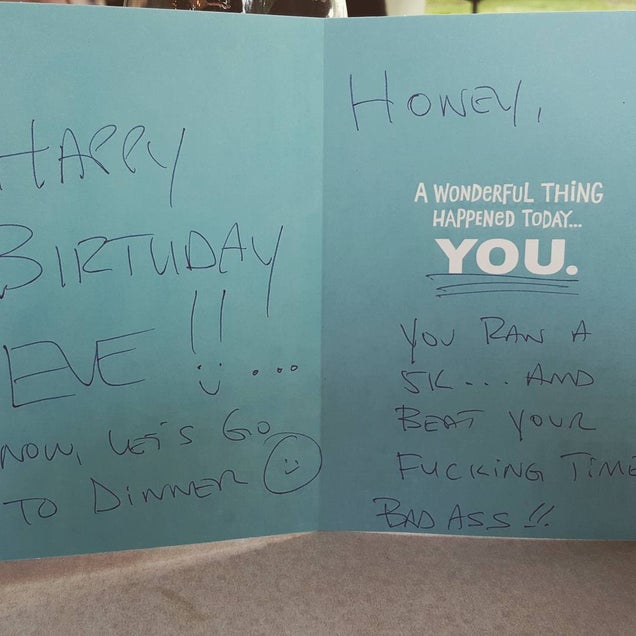 HAPPY
BIRTHDAY
EVE !! ...
NOW, LET'S GO
TO DINNER
HONEY,
A WONDERFUL THING
HAPPENED TODAY...
YOU.
YOU RAN A
5K... AND
BEAT YOUR
FUCKING TIME
BAD ASS !!